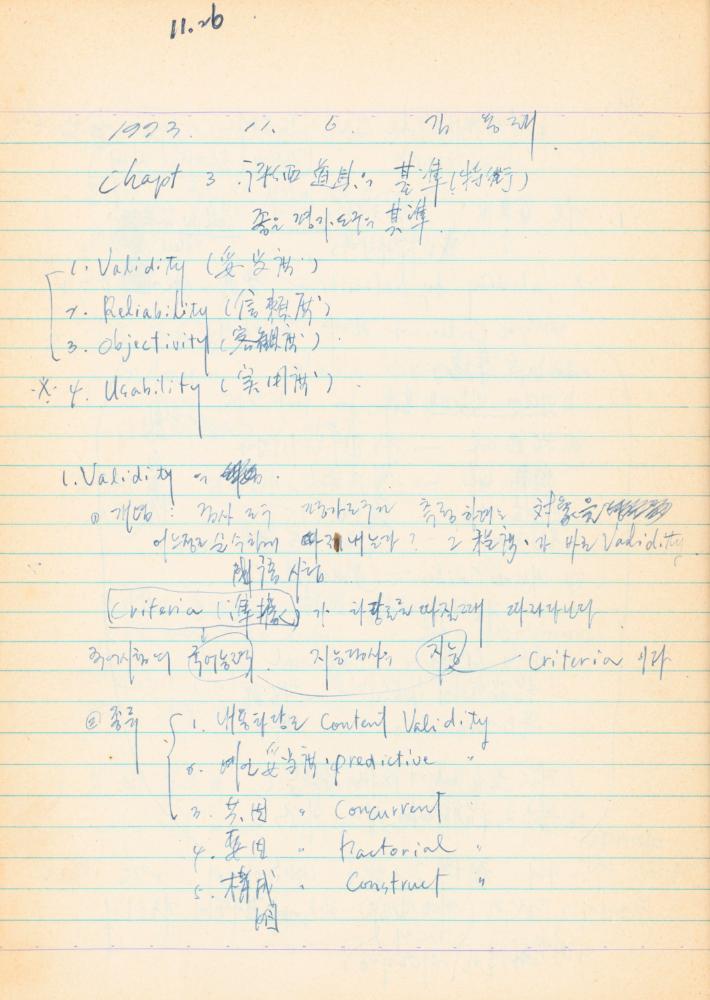 11.26
1973. 11. 6. 김
Chapt 3. 評価道具의 基準(特徵)
좋은 평가도구의 基準.
1. Validity (妥当度)
2. Reliability (信頼度)
3. Objectivity (客観度)
※ 4. Usability (実用度)
1. Validity 의
① 개념 : 검사 도구 평가도구가 측정하려는 対象을
어느정도 충실하게 따지 내는가? 그 程度가 바로 Validity
国語 시험
Criteria (準據) 가 타당도를 따질때 따라다닌다
국어시험의 국어능력. 지능검사의 지능 Criteria 이다
② 종류 1. 내용타당도 Content Validity
2. 예언妥当度 predictive 〃
3. 共因 〃 Concurrent
4. 要因 〃 Factorial 〃
5. 構成 〃 Construct 〃